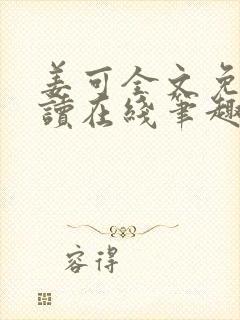 姜可全文免
讀在綫筆趣
容得